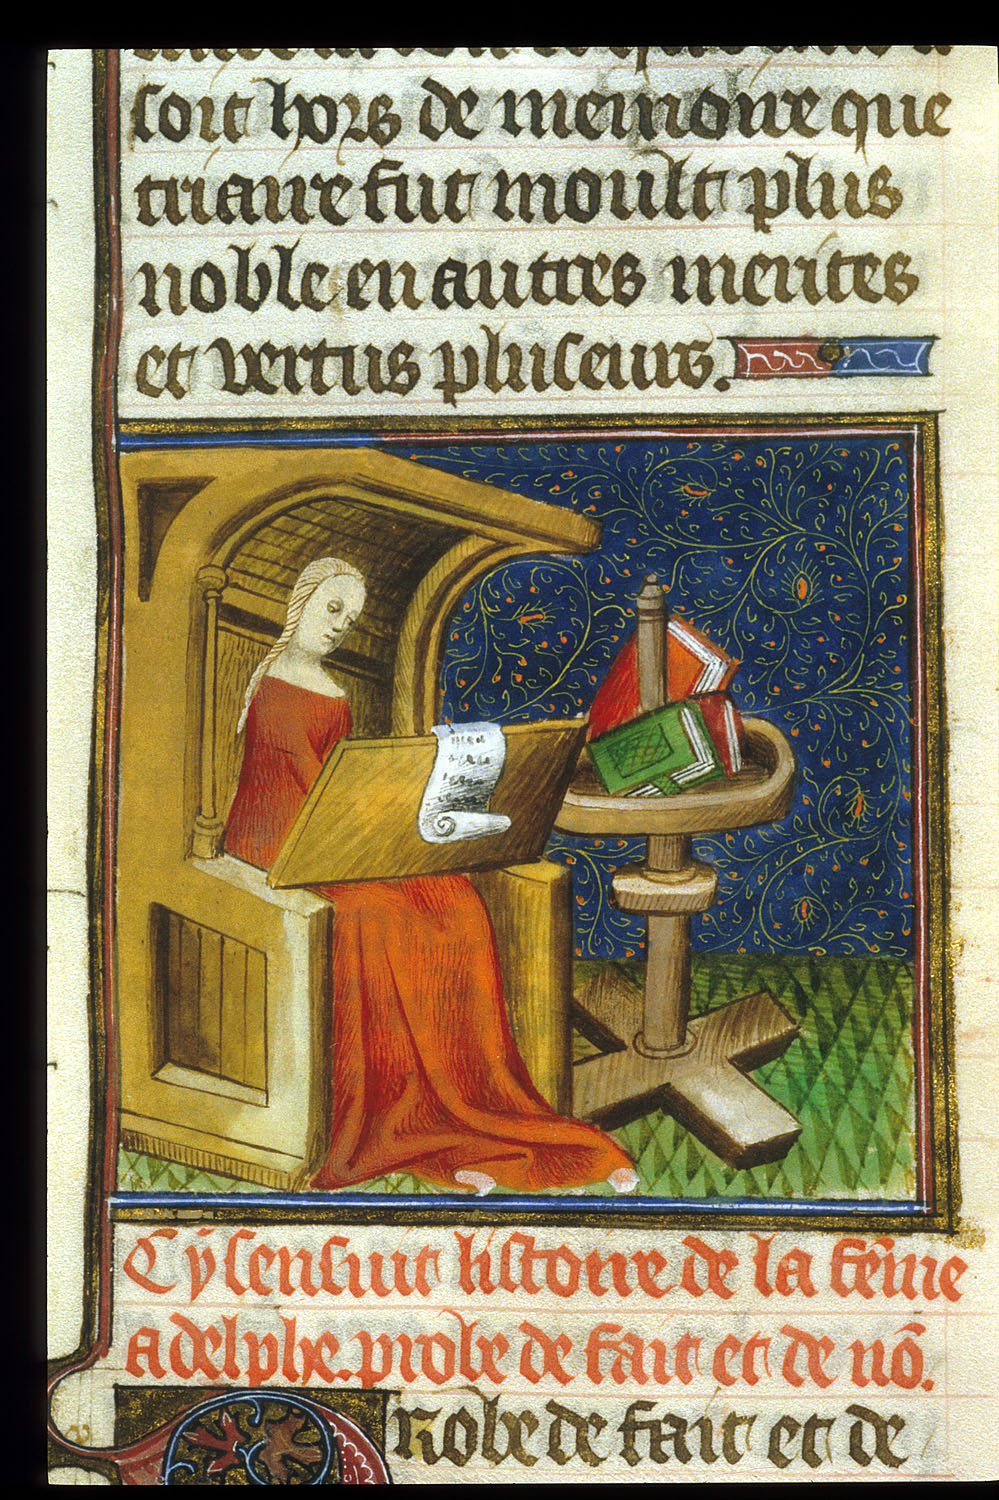 soit hors de memoire que
triaire fut moult plus
noble en autres merites
et vertus pluseurs.
Cy sensuit listoire de la fēme
adelphe. probe de fait et de nō.
Robe de fait et de